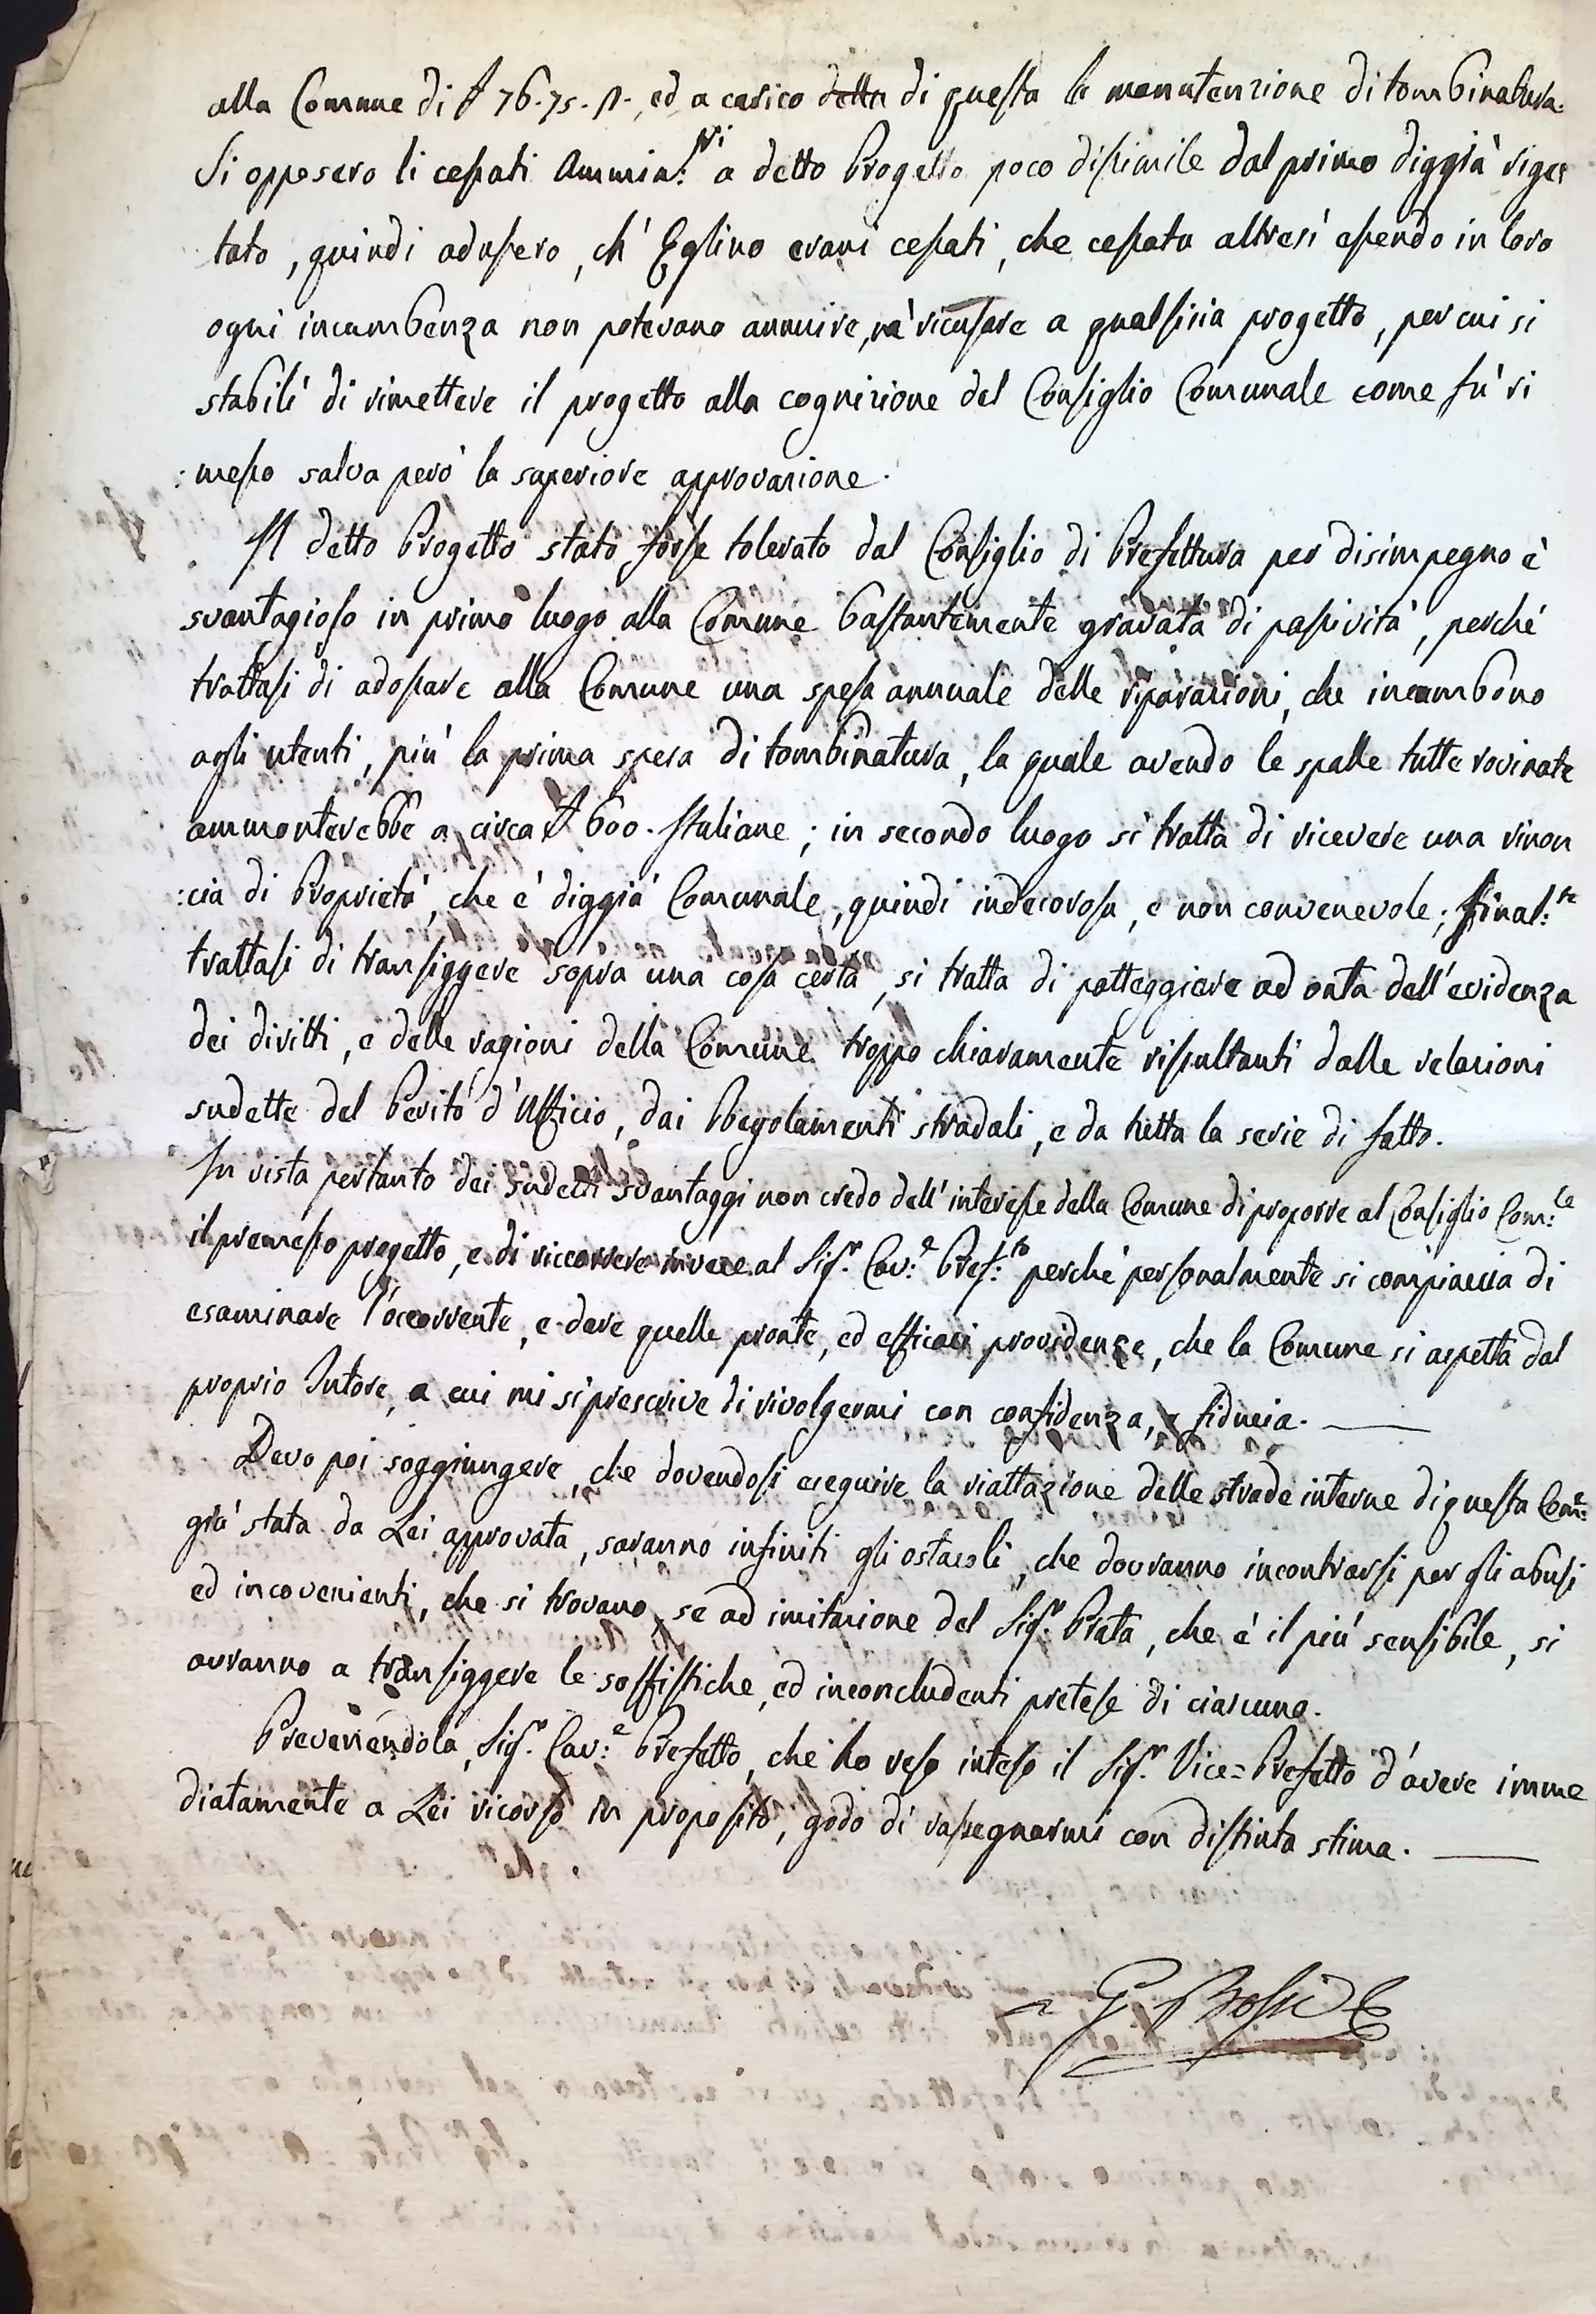 alla Comune di £ 76.75.n., ed a carico della di questa la manutenzione di tombinatura.
Si opposero li cessati Ammin:ri a detto Progetto poco dissimile dal primo diggià riget
tato, quindi adussero, ch' Eglino erano cessati, che cessata altresì essendo in loro
ogni incumbenza non potevano annuire, nè ricusare a qualsisia progetto, per cui si
stabilì di rimettere il progetto alla cognizione del Consiglio Comunale come fù ri
:messo salva però la superiore approvazione.
Il detto Progetto stato forse tolerato dal Consiglio di Prefettura per disimpegno è
svantagioso in primo luogo alla Comune bastantemente gravata di passività, perché
trattasi di adossare alla Comune una spesa annuale delle riparazioni, che incombono
agli utenti, più la prima spesa di tombinatura, la quale avendo le spalle tutte rovinate
ammonterebbe a circa £ 600. Italiane; in secondo luogo si tratta di ricevere una rinon
:cia di Proprietà, che è diggià Comunale, quindi indecorosa, e non convenevole; final:te
trattasi di transiggere sopra una cosa certa, si tratta di patteggiare ad onta dell'evidenza
dei diritti, e delle ragioni della Comune troppo chiaramente risultanti dalle relazioni
sudette del Perito d'Ufficio, dai Regolamenti stradali, e da tutta la serie di fatto.
In vista pertanto dei sudetti svantaggi non credo dell'interesse della Comune di proporre al Consiglio Com:le
il premesso progetto, e di riccorrere invece al Sig.r Cav:e Pref:to perchè personalmente si compiaccia di
esaminare l'occorrente, e dare quelle pronte, ed efficaci providenze, che la Comune si aspetta dal
proprio Tutore, a cui mi si prescrive di rivolgermi con confidenza, e fiducia.
Devo poi soggiungere, che dovendosi eseguire la riattazione delle strade interne di questa Com:e
già stata da Lei approvata, saranno infiniti gli ostacoli, che dovranno incontrarsi per gli abusi
ed incovenienti, che si trovano, se ad imitazione del Sig.r Prata, che è il più sensibile, si
avranno a transiggere le soffistiche, ed inconcludenti pretese di ciascuno.
Prevenendola, Sig.r Cav:e Prefetto, che ho reso inteso il Sig.r Vice=Prefetto d'avere imme
diatamente a Lei ricorso in proposito, godo di rassegnarmi con distinta stima.
G. Bossi